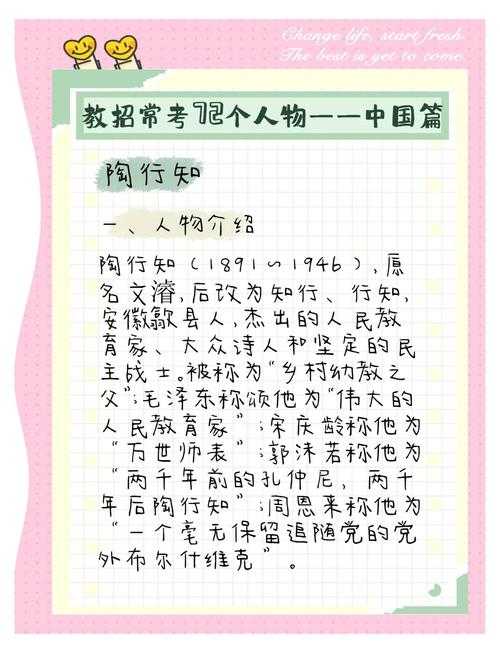 Change life, scart fresh.
The best is yet to come.
教招常考72个人物——中国篇
陶行知
一、人物介绍
陶行知(1891~1946),原
名文濬,后改为知行、行知,
安徽歙县人,杰出的人民教
育家、大众诗人和坚定的民
主战士。被称为“乡村幼教之
父”;毛泽东称颂他为“伟大的
人民教育家”;宋庆龄称他为
“万世师表”;郭沫若称他为
“两千年前的孔仲尼,两千
年后陶行知”;周恩来称他为
“一个毫无保留追随党的党
外布尔什维克”。